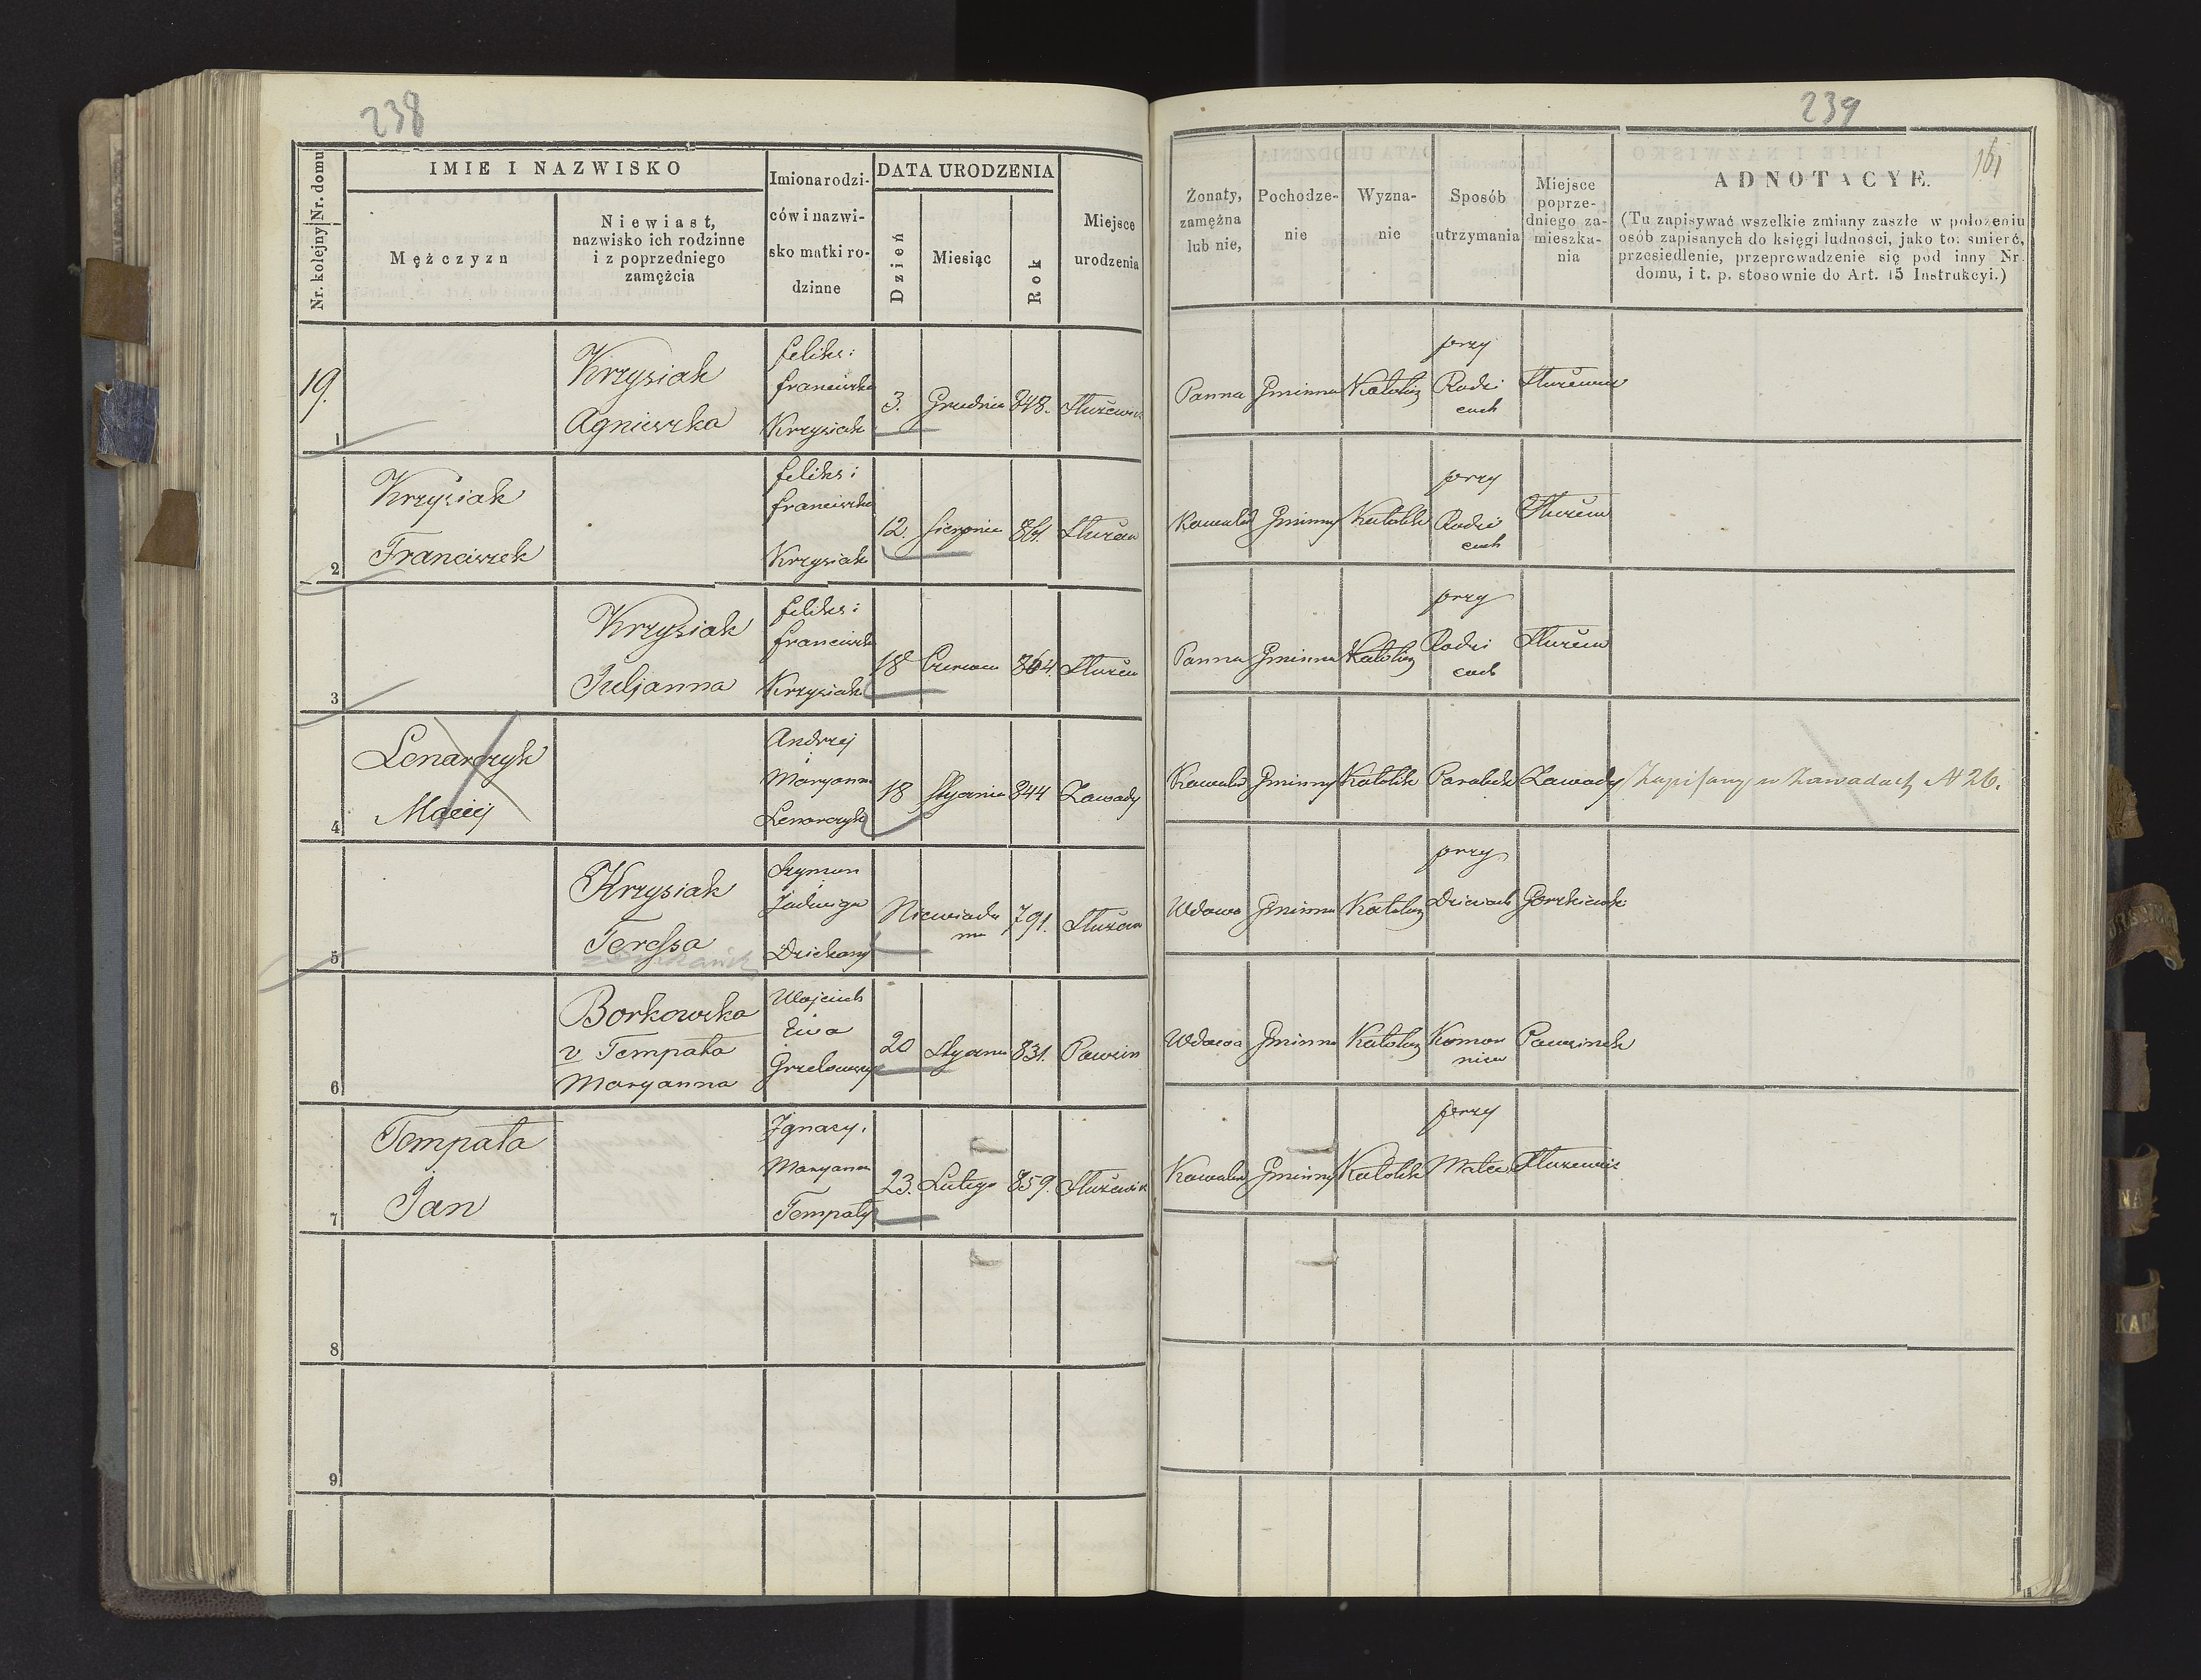 238
Nr. kolejny Nr. domu
IMIE I NAZWISKO
Mężczyzn
Niewiast,
nazwisko ich rodzinne
i z poprzedniego
zamężcia
Imiona rodzi-
ców i nazwi-
sko matki ro-
dzinne
DATA URODZENIA
Dzień
Miesiąc
Rok
Miejsce
urodzenia
19.
1
Krzysiak
Agnieszka
feliks i
franciszka
Krzysiak
3. Grudnia 848.
2
Krzysiak
Franciszek
feliks i
franciszka
Krzysiak
12. Sierpnia
3
Krzysiak
Juljanna
feliks i
franciszka
Krzysiak
18 Czerwca 864.
4
Lenarczyk
Maciej
Andrzej
i
Maryanna
Lenarczyk
18 Stycznia 844 Zawady
5
Krzysiak
Teressa
Szymon
i
Jadwiga
Dziekany
Niewiado
ma
791.
6
Borkowska
v Tempała
Maryanna
Wojciech
Ewa
20 Stycznia 831.
7
Tempała
Jan
Ignacy.
Maryanna
Tempały
23. Lutego 859.
8
9
239
161
Żonaty,
zamężna
lub nie,
Pochodze-
nie
Wyzna-
nie
Sposób
utrzymania
Miejsce
poprze-
dniego za-
mieszka-
nia
ADNOTACYE.
(Tu zapisywać wszelkie zmiany zaszłe w położeniu
osób zapisanych do księgi ludności, jako to: śmierć,
przesiedlenie, przeprowadzenie się pod inny Nr
domu, i t. p. stosownie do Art. 15 Instrukcyi.)
Panna Gminna Katolicz
przy
Rodzi
cach
Kawaler Gminny Katolik
przy
Rodzi
cach
Panna Gminna Katolicz
przy
Rodzi
cach
Kawaler Gminny Katolik Parobek Zawady Zapisany w Zawadach N 26.
Wdowa Gminna Katolicz
przy
Dzieciach
Wdowa Gminna Katolicz
Komor
nica
Kawaler Gminny Katolik
przy
Matce